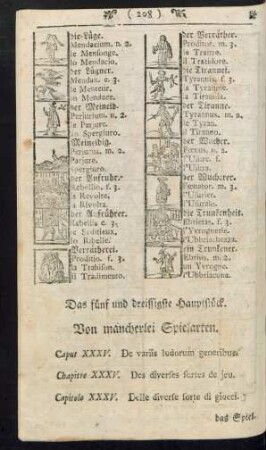 ( 208 )
die Lüge.
Mendacium. n. 2.
le Mensonge.
lo Mendacio.
der Lügner.
Mendax. c. 3.
le Menteur.
lo Mendace.
der Meineid.
Perjurium. n. 2.
le Parjure.
lo Spergiuro.
Meineidig.
Perjurus. m. 2.
Parjure.
Spergiuro.
der Aufruhr.
Rebellio. f. 3.
la Revolte.
la Rivolta.
der Aufrührer.
Rebellis c. 3.
le Seditieux.
lo Ribelle.
Verrätherei.
Proditio. f. 3.
la Trahison.
il Tradimento.
der Verräther.
Proditor. m. 3.
le Traitre.
il Traditore.
die Tirannei.
Tyrannis. f. 3.
la Tyrannie.
la Tirannia.
der Tirann.
Tyrannus. m. 2.
le Tyran.
il Tiranno.
der Wucher.
Fenus. n. 3.
l'Usure. f.
l'Usura.
der Wucherer.
Fenerator. m. 3.
l'Usurier.
l'Usuraio.
die Trunkenheit.
Ebrietas. f. 3.
l'Yvrognerie.
l'Ubbriachezza.
ein Trunkener.
Ebrius. m. 2.
un Yvrogne.
l'Ubbriaco.
Das fünf und dreissigste Hauptstück.
Von mancherlei Spielarten.
Caput XXXV. De variis ludorum generibus.
Chapitre XXXV. Des diverses sortes de jeu.
Capitolo XXXV. Delle diverse sorte di giuoci.
das Spiel-